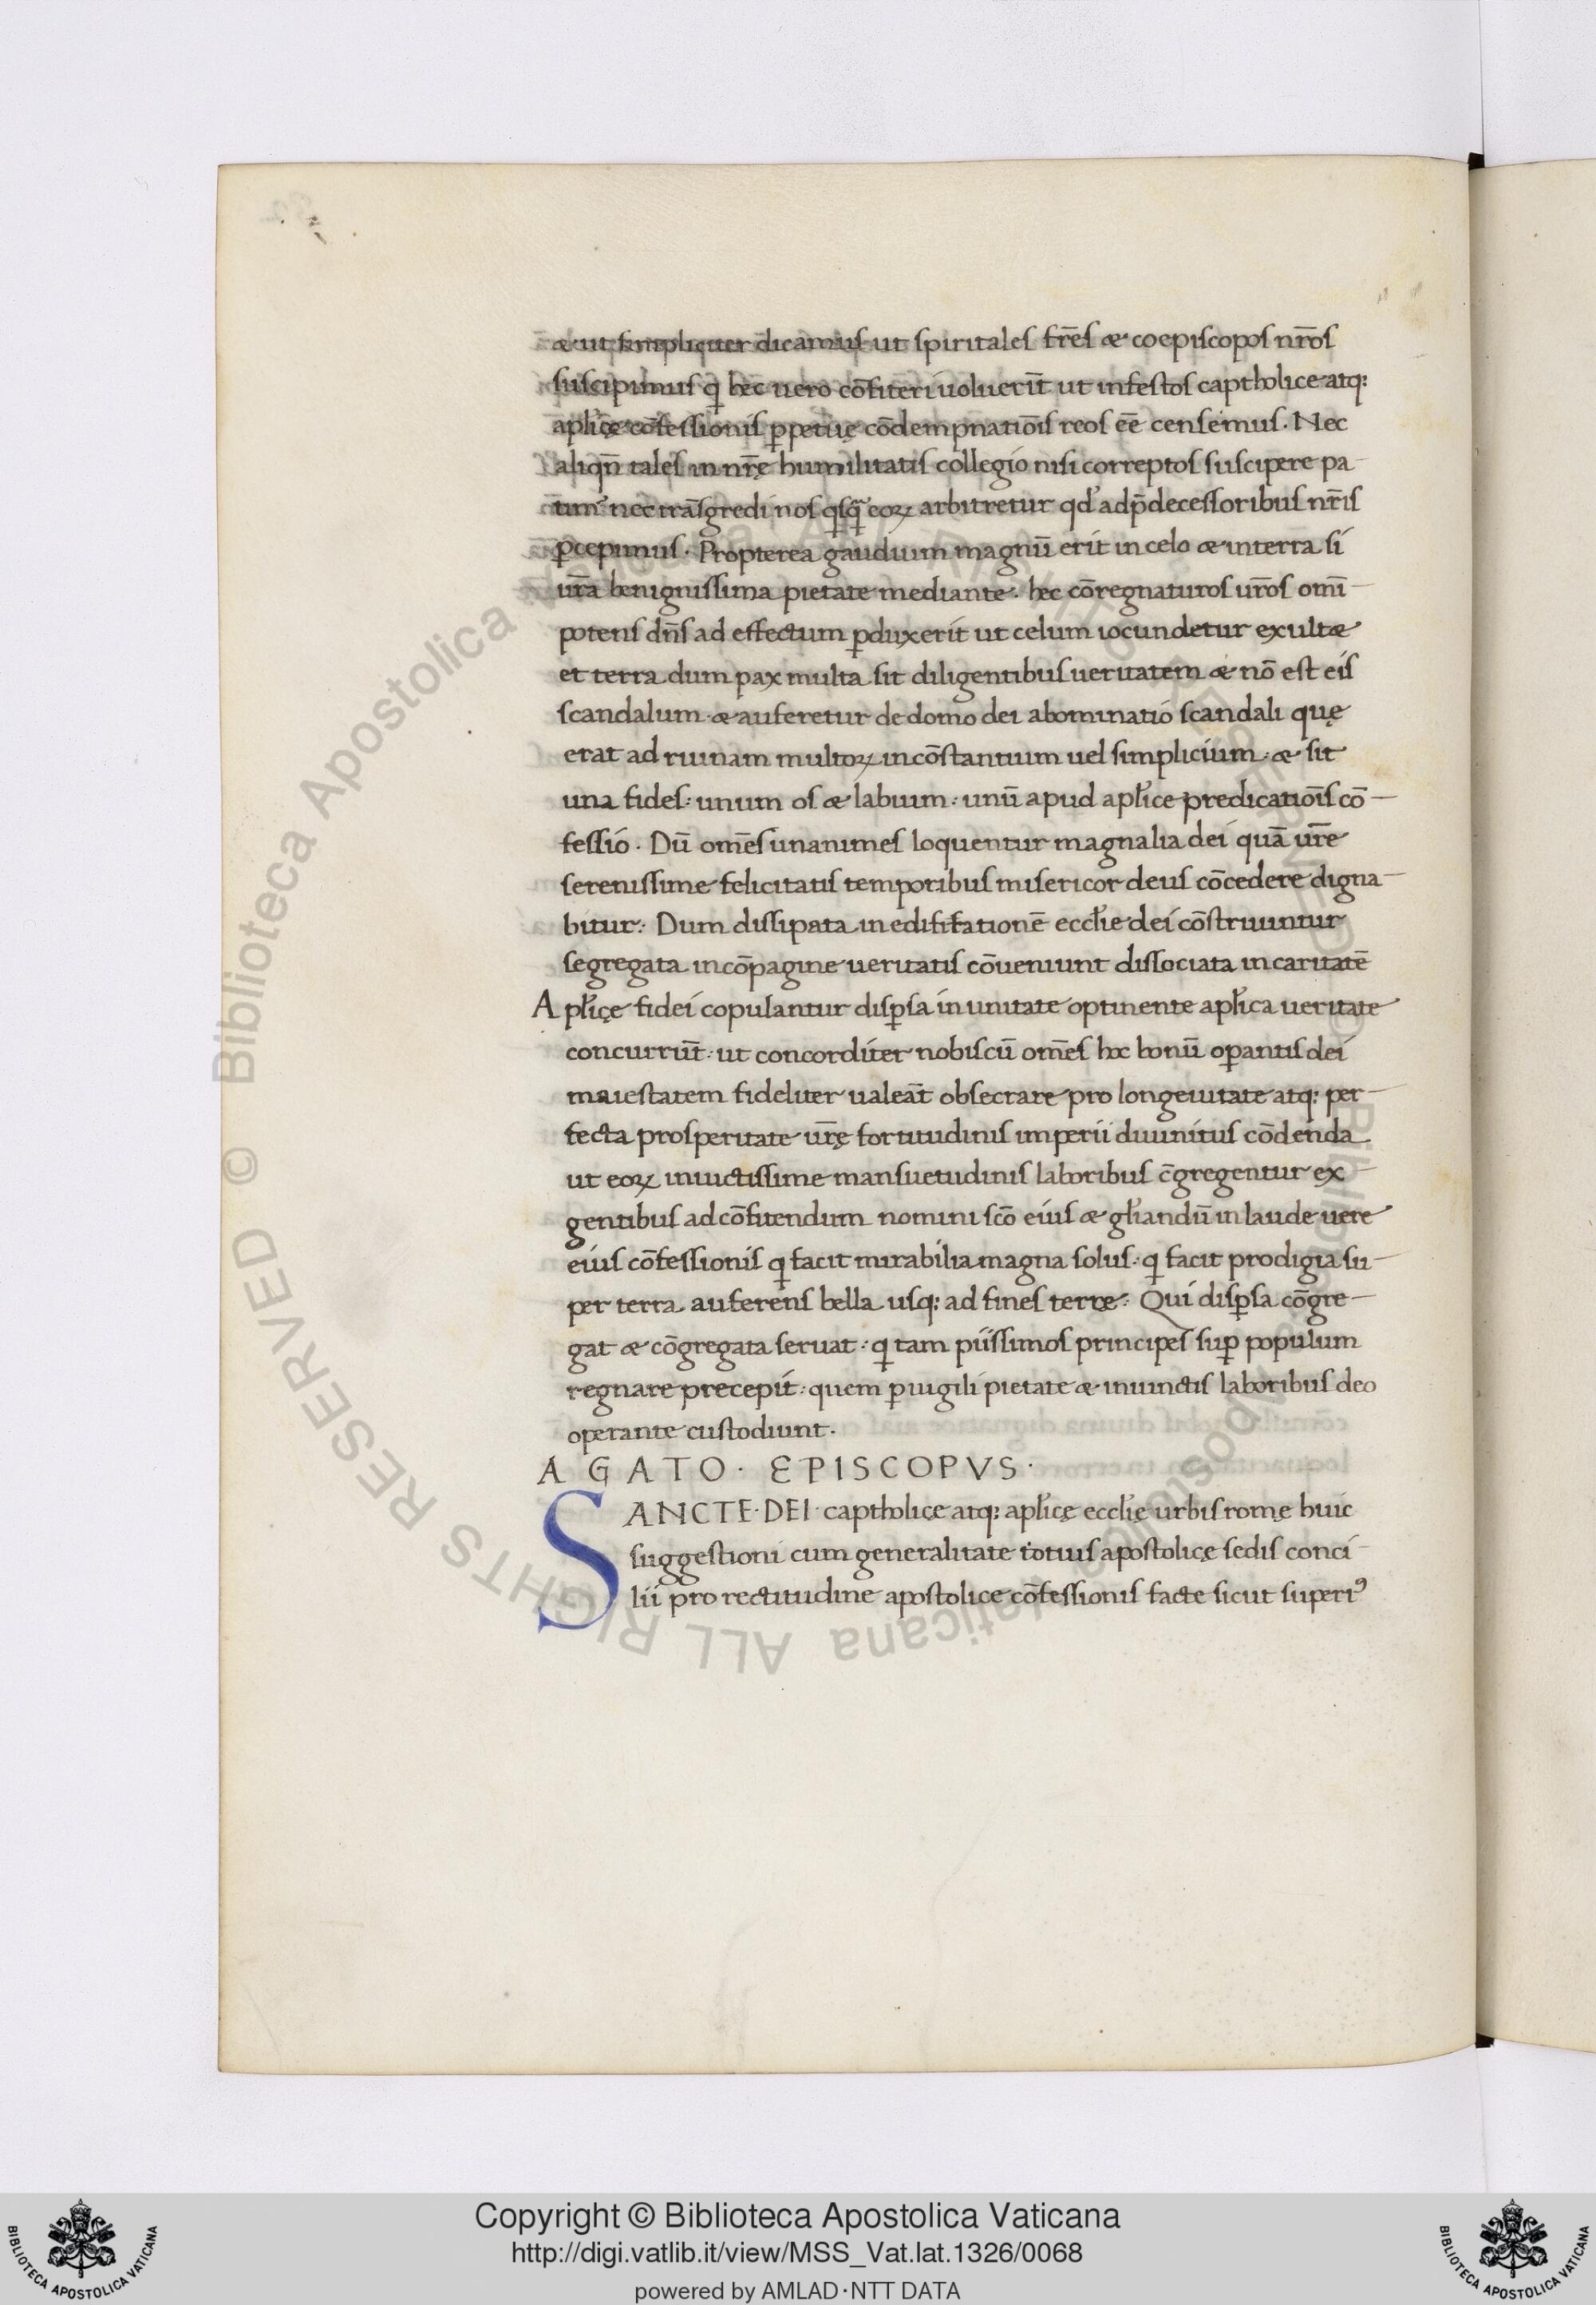 & ut simpliciter dicamus ut spiritales fr̄es & coepiscopos nr̄os
suscipimus q hęc uero cōfiteri uoluerīt ut infestos captholice atq;
apl̓icę cōfessionis ꝑpetuę cōdempnatiōis reos eē censemus. Nec
aliqn̄ tales in nr̄ę humilitatis collegio nisi correptos suscipere pa
timur nec trāsgredi nos qsq̄ eoꝝ arbitretur qd̓ adp̄decessoribus nr̄is
ꝑcepimus. Propterea gaudium magnū erit in celo & in terra si
ur̄a benignissima pietate mediante. hec cōregnaturos ur̄os omī
potens dn̄s ad effectum ꝑduxerit ut celum iocundetur exult&
et terra dum pax multa sit diligentibus ueritatem & nō est eis
scandalum & auferetur de domo dei abominatio scandali quę
erat ad ruinam multoꝝ incōstantium uel simplicium & sit
una fides: unum os & labium: unū apud apl̓ice predicatiōis cō
fessio. Dū om̄es unanimes loquentur magnalia dei quā ur̄e
serenissime felicitatis temporibus misericor deus cōcedere digna
bitur: Dum dissipata in edifitationē eccl̓ie dei cōstruuntur
segregata in cōpagine ueritatis cōueniunt dissociata in caritatē
Apl̓icę fidei copulantur disꝑsa in unitate optinente apl̓ica ueritate
concurrūt: ut concorditer nobiscū om̄es hoc bonū oꝑantis dei
maiestatem fideliter ualeāt obsecrare pro longeuitate atq; per
fecta prosperitate ur̄ę fortitudinis imperii diuinitus cōdenda
ut eoꝝ inuictissime mansuetudinis laboribus c̄gregentur ex
gentibus ad cōfitendum nomini scō eius & gl̓iandū in laude uere
eius cōfessionis q facit mirabilia magna solus: q facit prodigia su
per terra auferens bella usq; ad fines terrę: Qui disꝑsa cōgre
gat & cōgregata seruat: q tam piissimos principes suꝑ populum
regnare precepit: quem ꝑuigili pietate & inuinctis laboribus deo
operante custodiunt.
AGATO. EPISCOPVS.
SANCTE. DEI. captholicę atq; apl̓icę eccl̓ię urbis romę huic
suggestioni cum generalitate totius apostolicę sedis conci
lii pro rectitudine apostolice cōfessionis facte sicut superiꝰ
© Biblioteca Apostolica Vaticana ALL RIGHTS RESERVED
Copyright © Biblioteca Apostolica Vaticana
http://digi.vatlib.it/view/MSS_Vat.lat.1326/0068
powered by AMLAD·NTT DATA
BIBLIOTECA APOSTOLICA VATICANA
BIBLIOTECA APOSTOLICA VATICANA